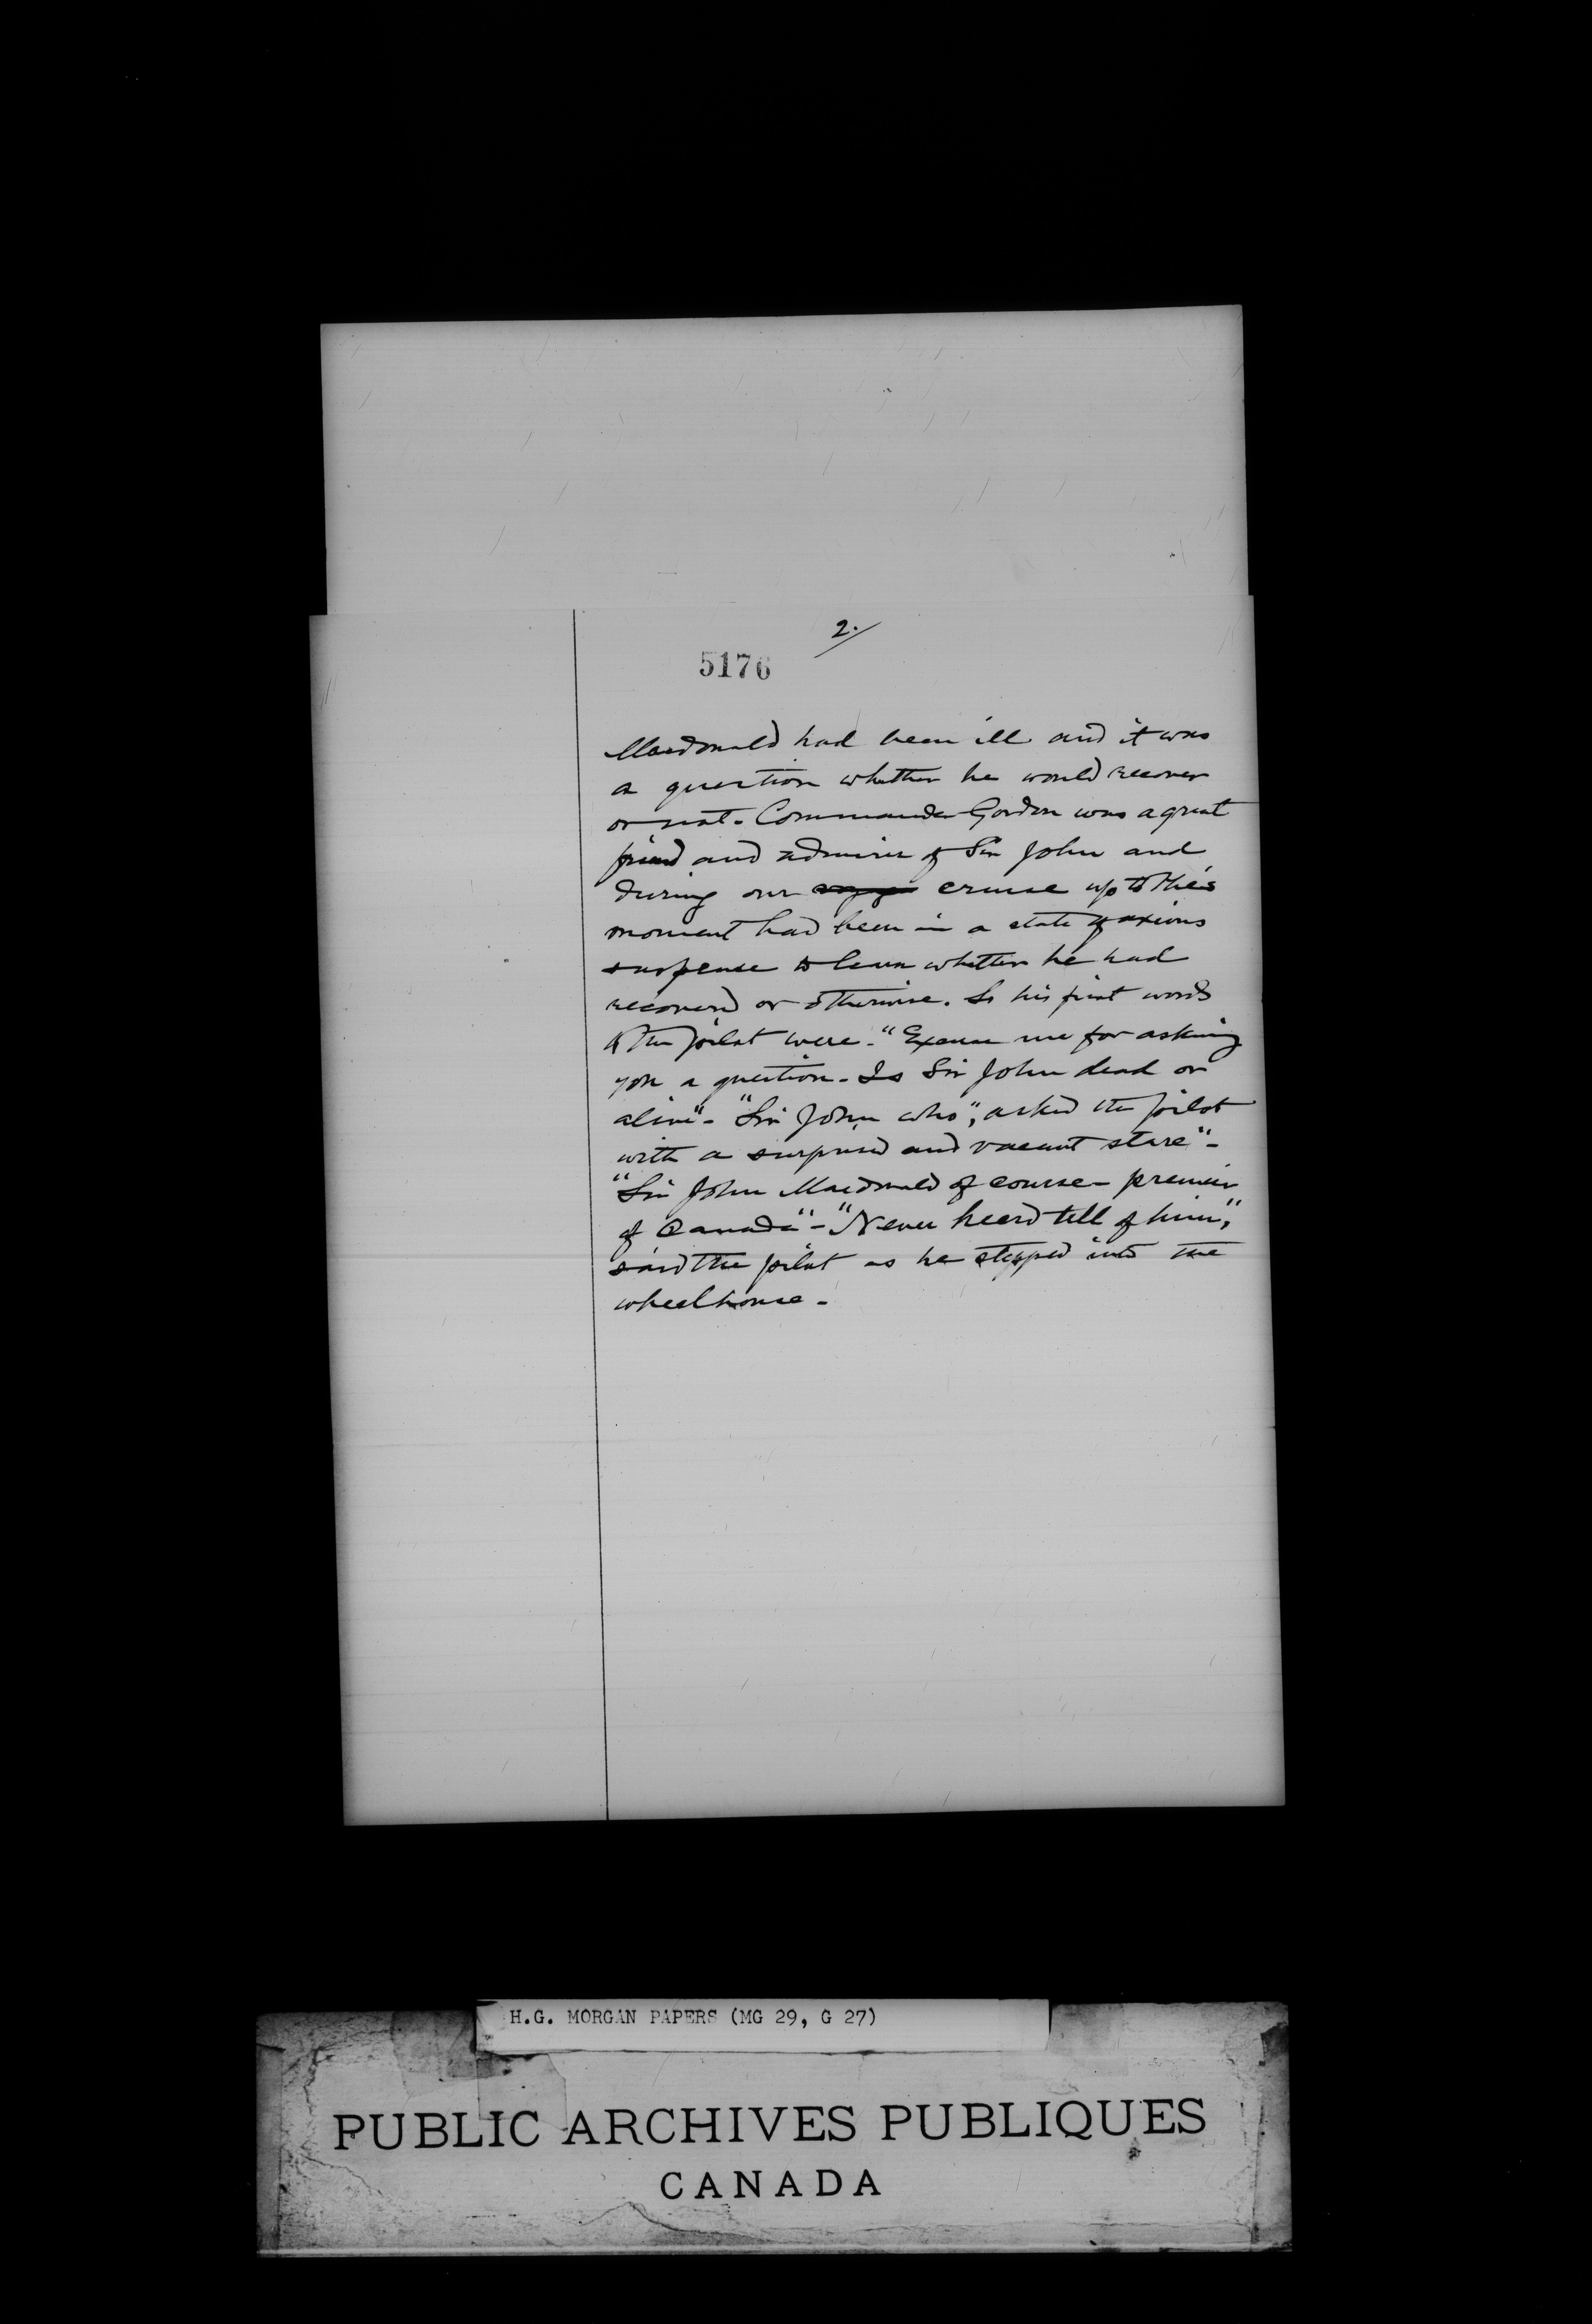 2.
5176
Macdonald had been ill and it was
a question whether he would recover
or not. Commander Gordon was a great
friend and admirer of Sir John and
during our cruise up to this
moment had been in a state of anxious
suspense to learn whether he had
recovered or otherwise. So his first words
to the pilot were - "Excuse me for asking
you a question - Is Sir John dead or
alive" - "Sir John who", asked the pilot
with a surprised and vacant stare" -
"Sir John Macdonald of course - premier
of Canada" - "Never heard tell of him",
said the pilot as he stepped into the
wheelhouse -
H.G. MORGAN PAPERS (MG 29, G 27)
PUBLIC ARCHIVES PUBLIQUES
CANADA